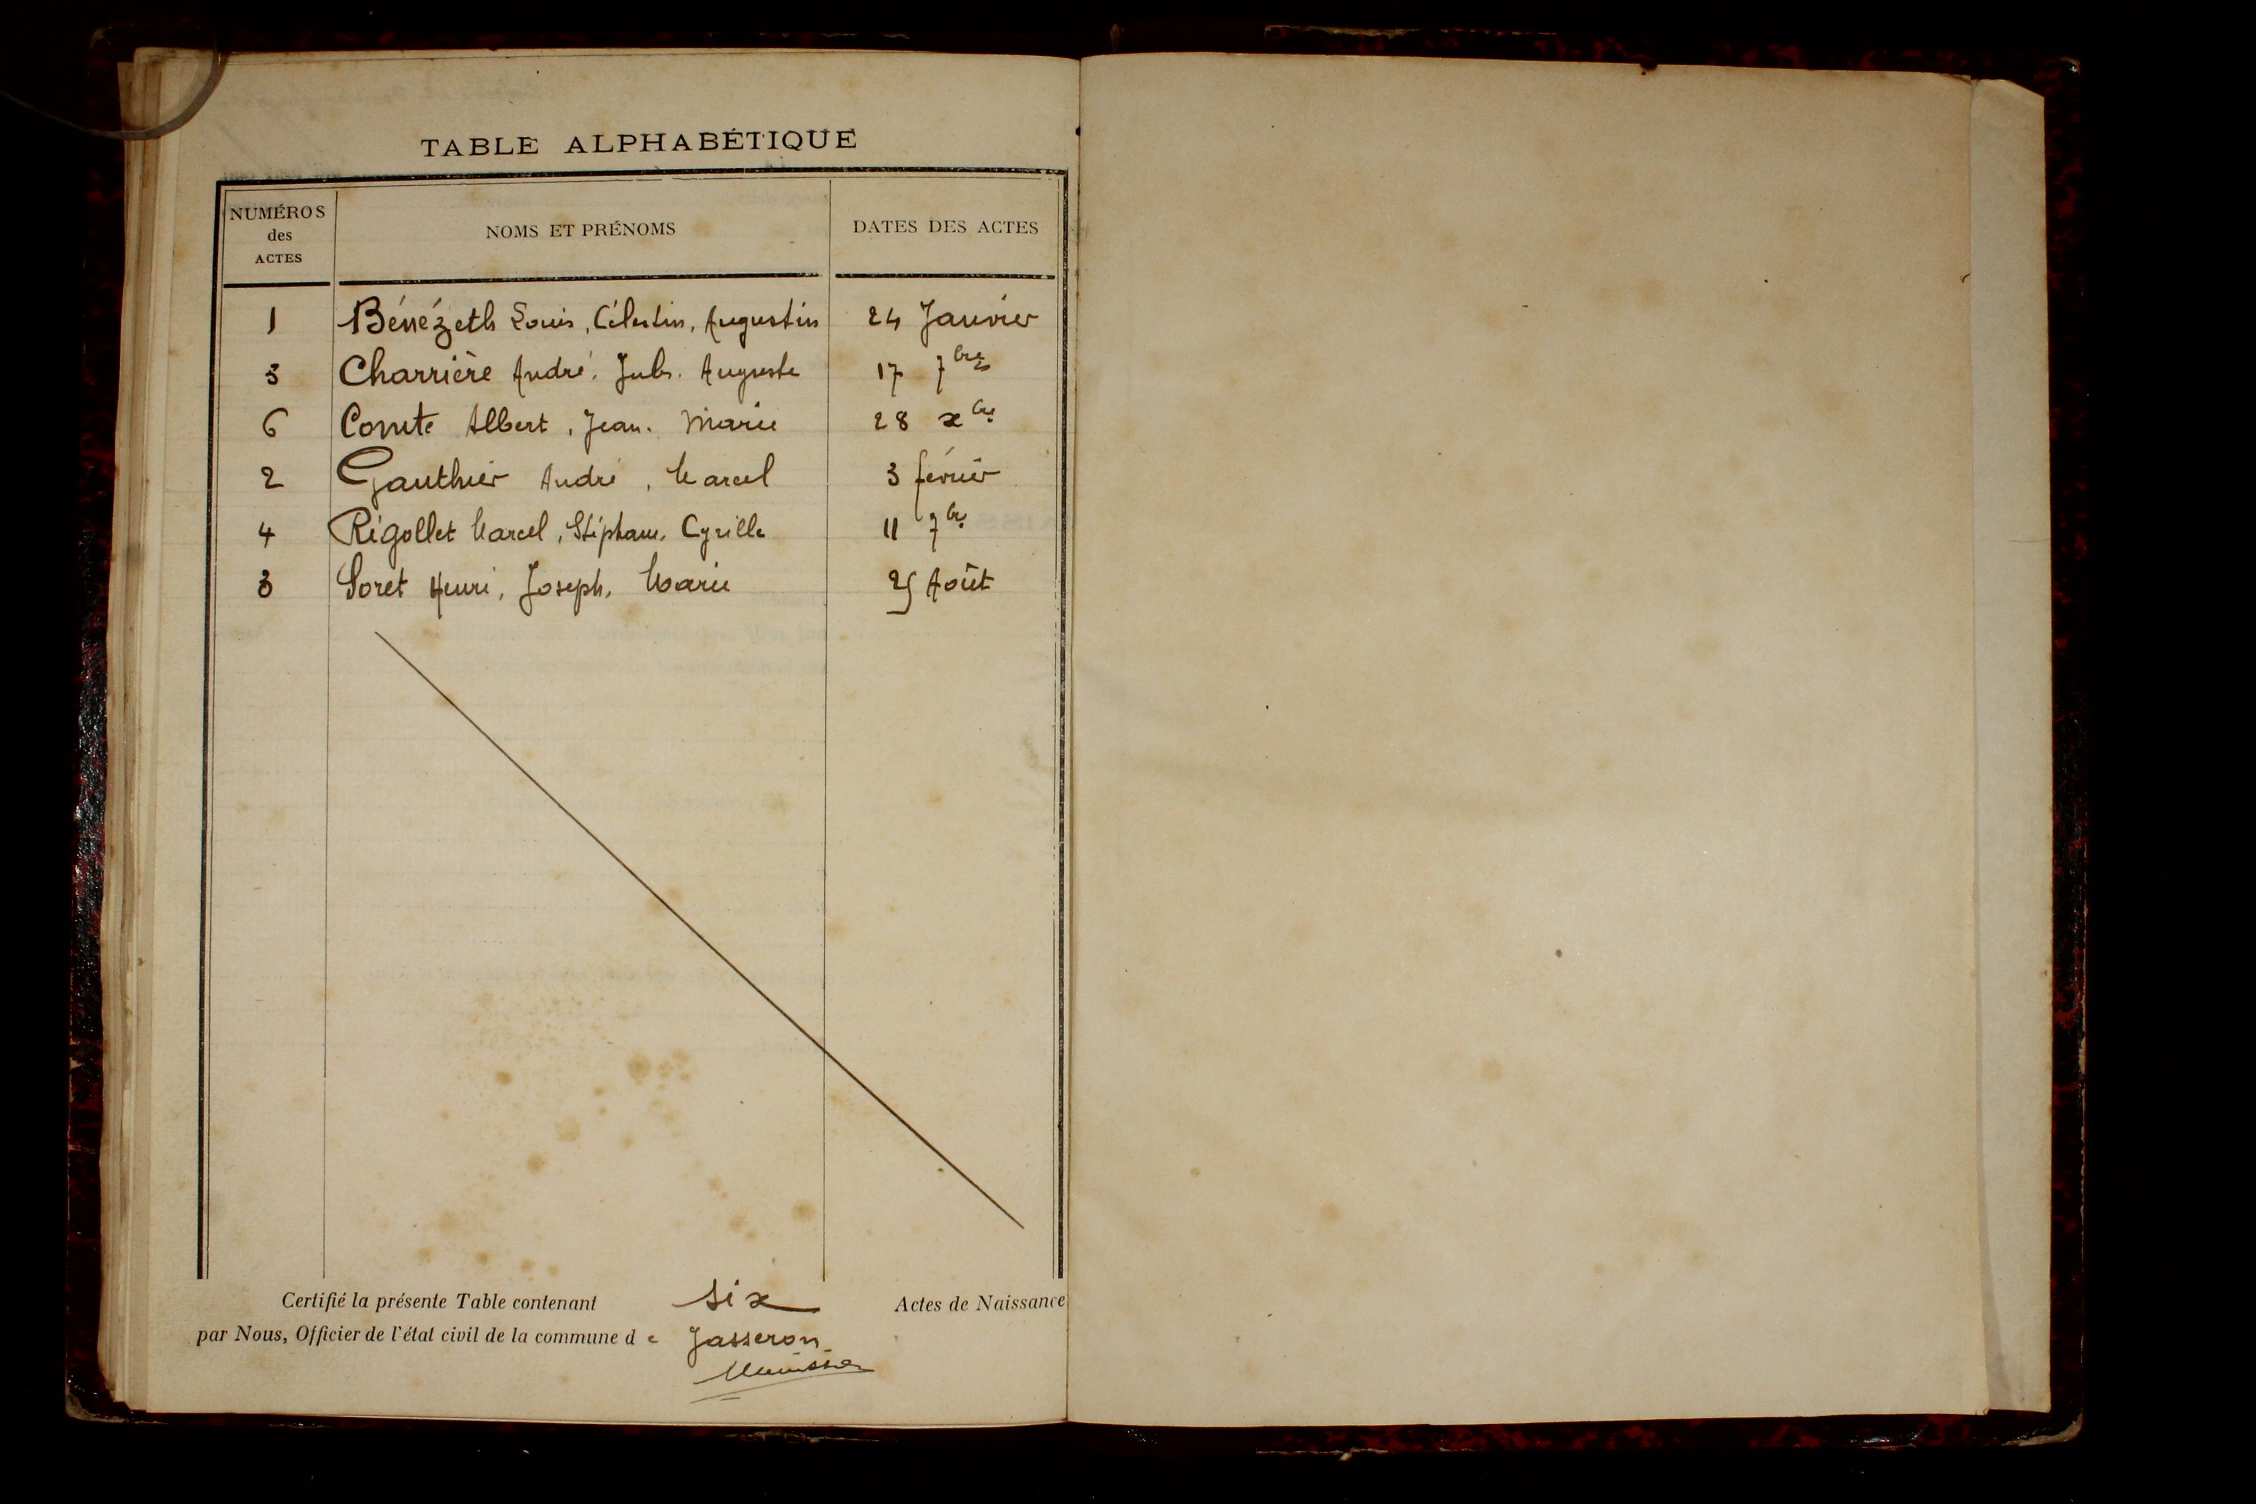 TABLE ALPHABÉTIQUE
NUMÉROS des ACTES NOMS ET PRÉNOMS DATES DES ACTES
1 Bénézeth Louis, Célestin, Augustin 24 Janvier
5 Charrière André, Jules. Auguste 17 7bre
6 Comte Albert, Jean. Marie 28 xbre
2 Gauthier André, Marcel 3 février
4 Rigollet Marcel, Stéphane, Cyrille 11 7bre
3 Soret Henri, Joseph, Marie 25 Août
Certifié la présente Table contenant six Actes de Naissance
par Nous, Officier de l'état civil de la commune de Jasseron